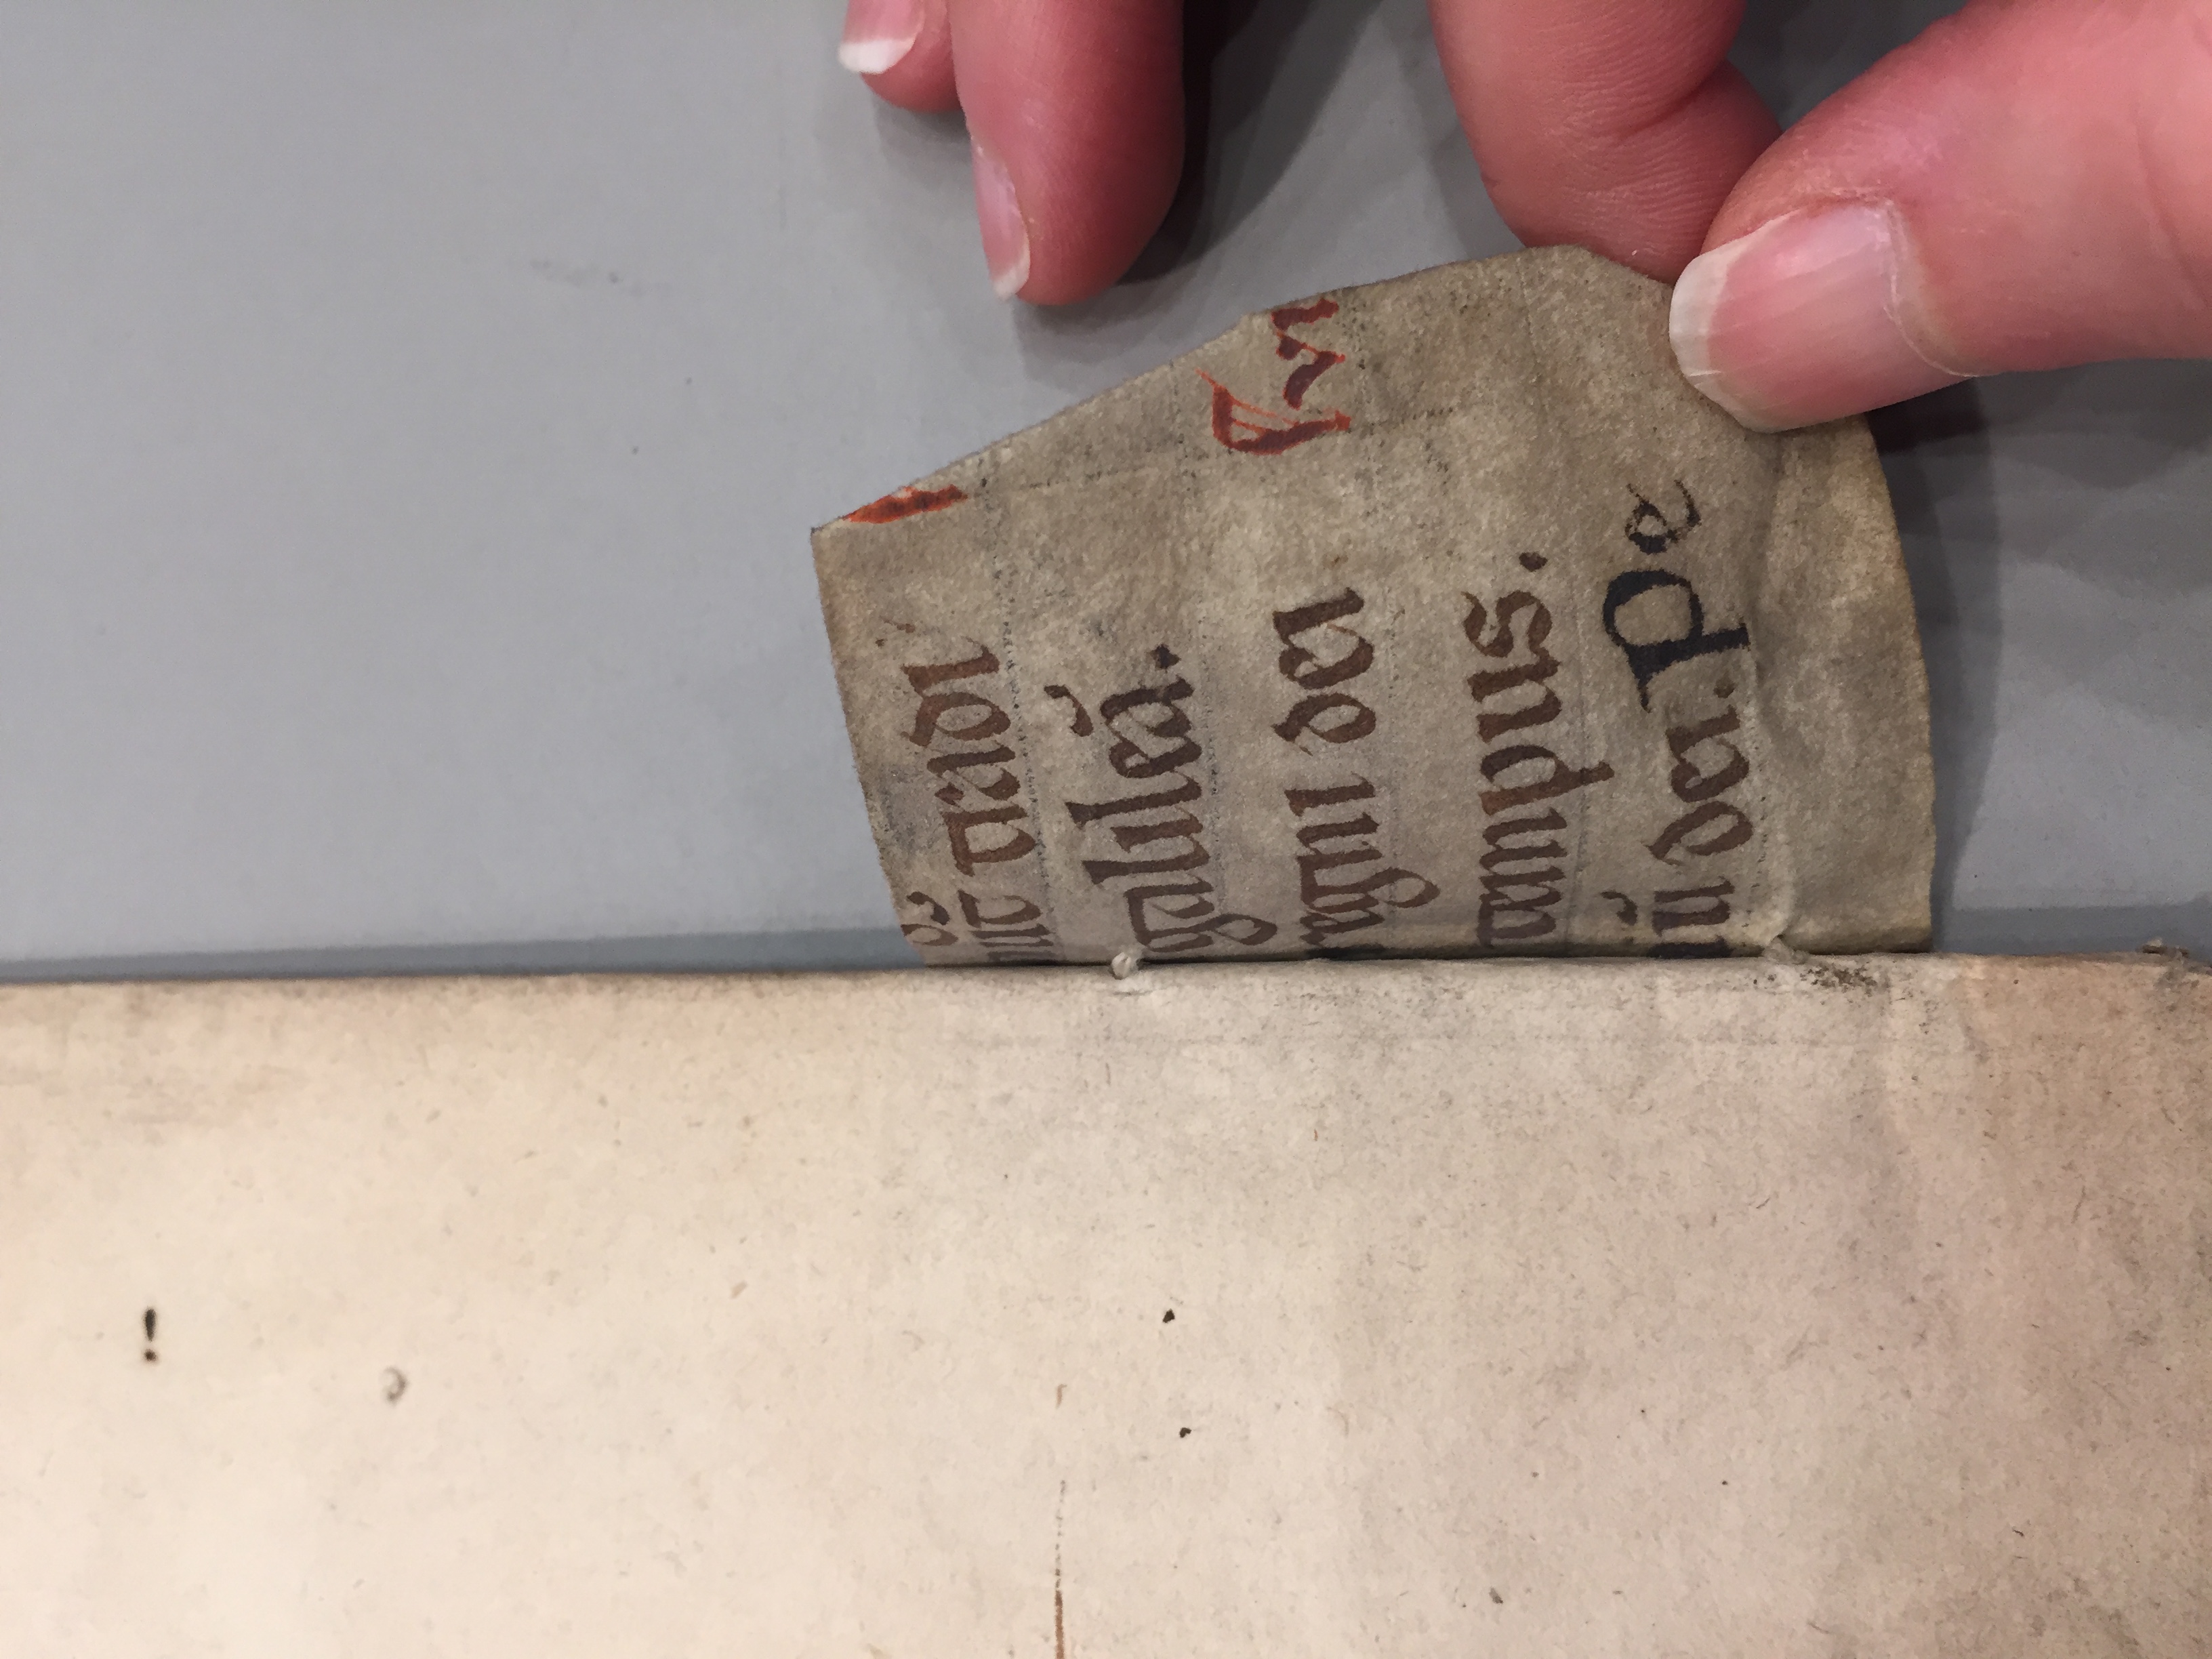 uit̄ tradi
galileā.
regni dei
tempus.
iū dei. Pe
vi